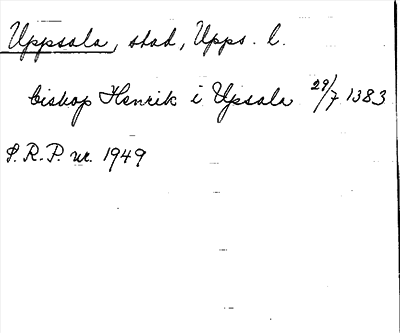 Uppsala, stad, Upps. l.
biskop Henrik i Upsala 29/7 1383
S.R.P. nr. 1949